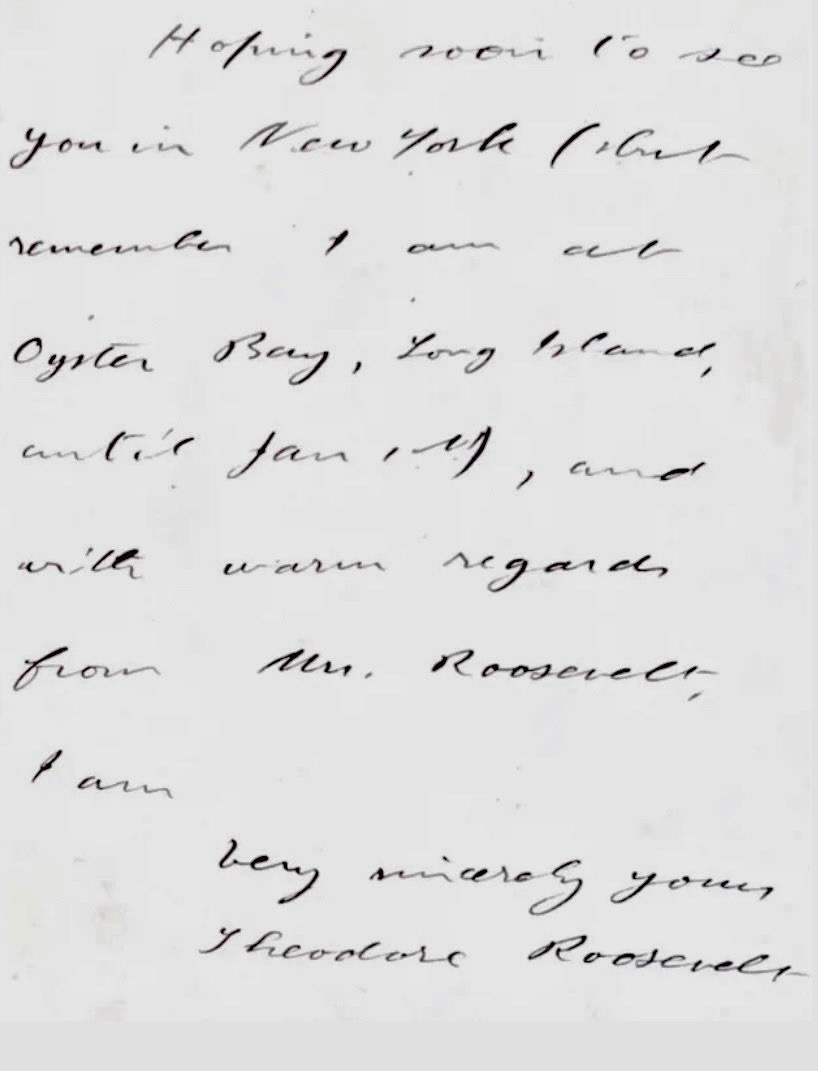 Hoping soon to see
you in New York (but
remember I am at
Oyster Bay, Long Island,
until Jan 1st), and
with warm regards
from Mrs. Roosevelt,
I am
Very sincerely yours
Theodore Roosevelt